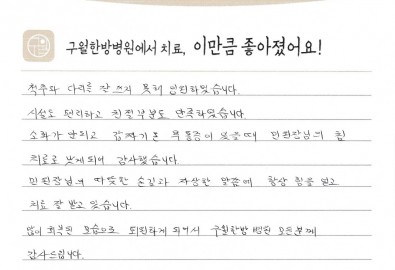 구월한방병원에서 치료, 이만큼 좋아졌어요!
척추와 다리를 잘 쓰지 못해 입원하였습니다.
시설도 편리하고 친절부분도 만족하였습니다.
소화가 안되고 갑자기 온 두통증이 왔을때 민원장님의 침
치료로 낫게되어 감사했습니다.
민원장님의 따뜻한 손길과 자상한 말씀에 항상 힘을 얻고
치료 잘 받고 있습니다.
많이 회복된 모습으로 퇴원하게 되어서 구월한방 병원 모든분께
감사드립니다.